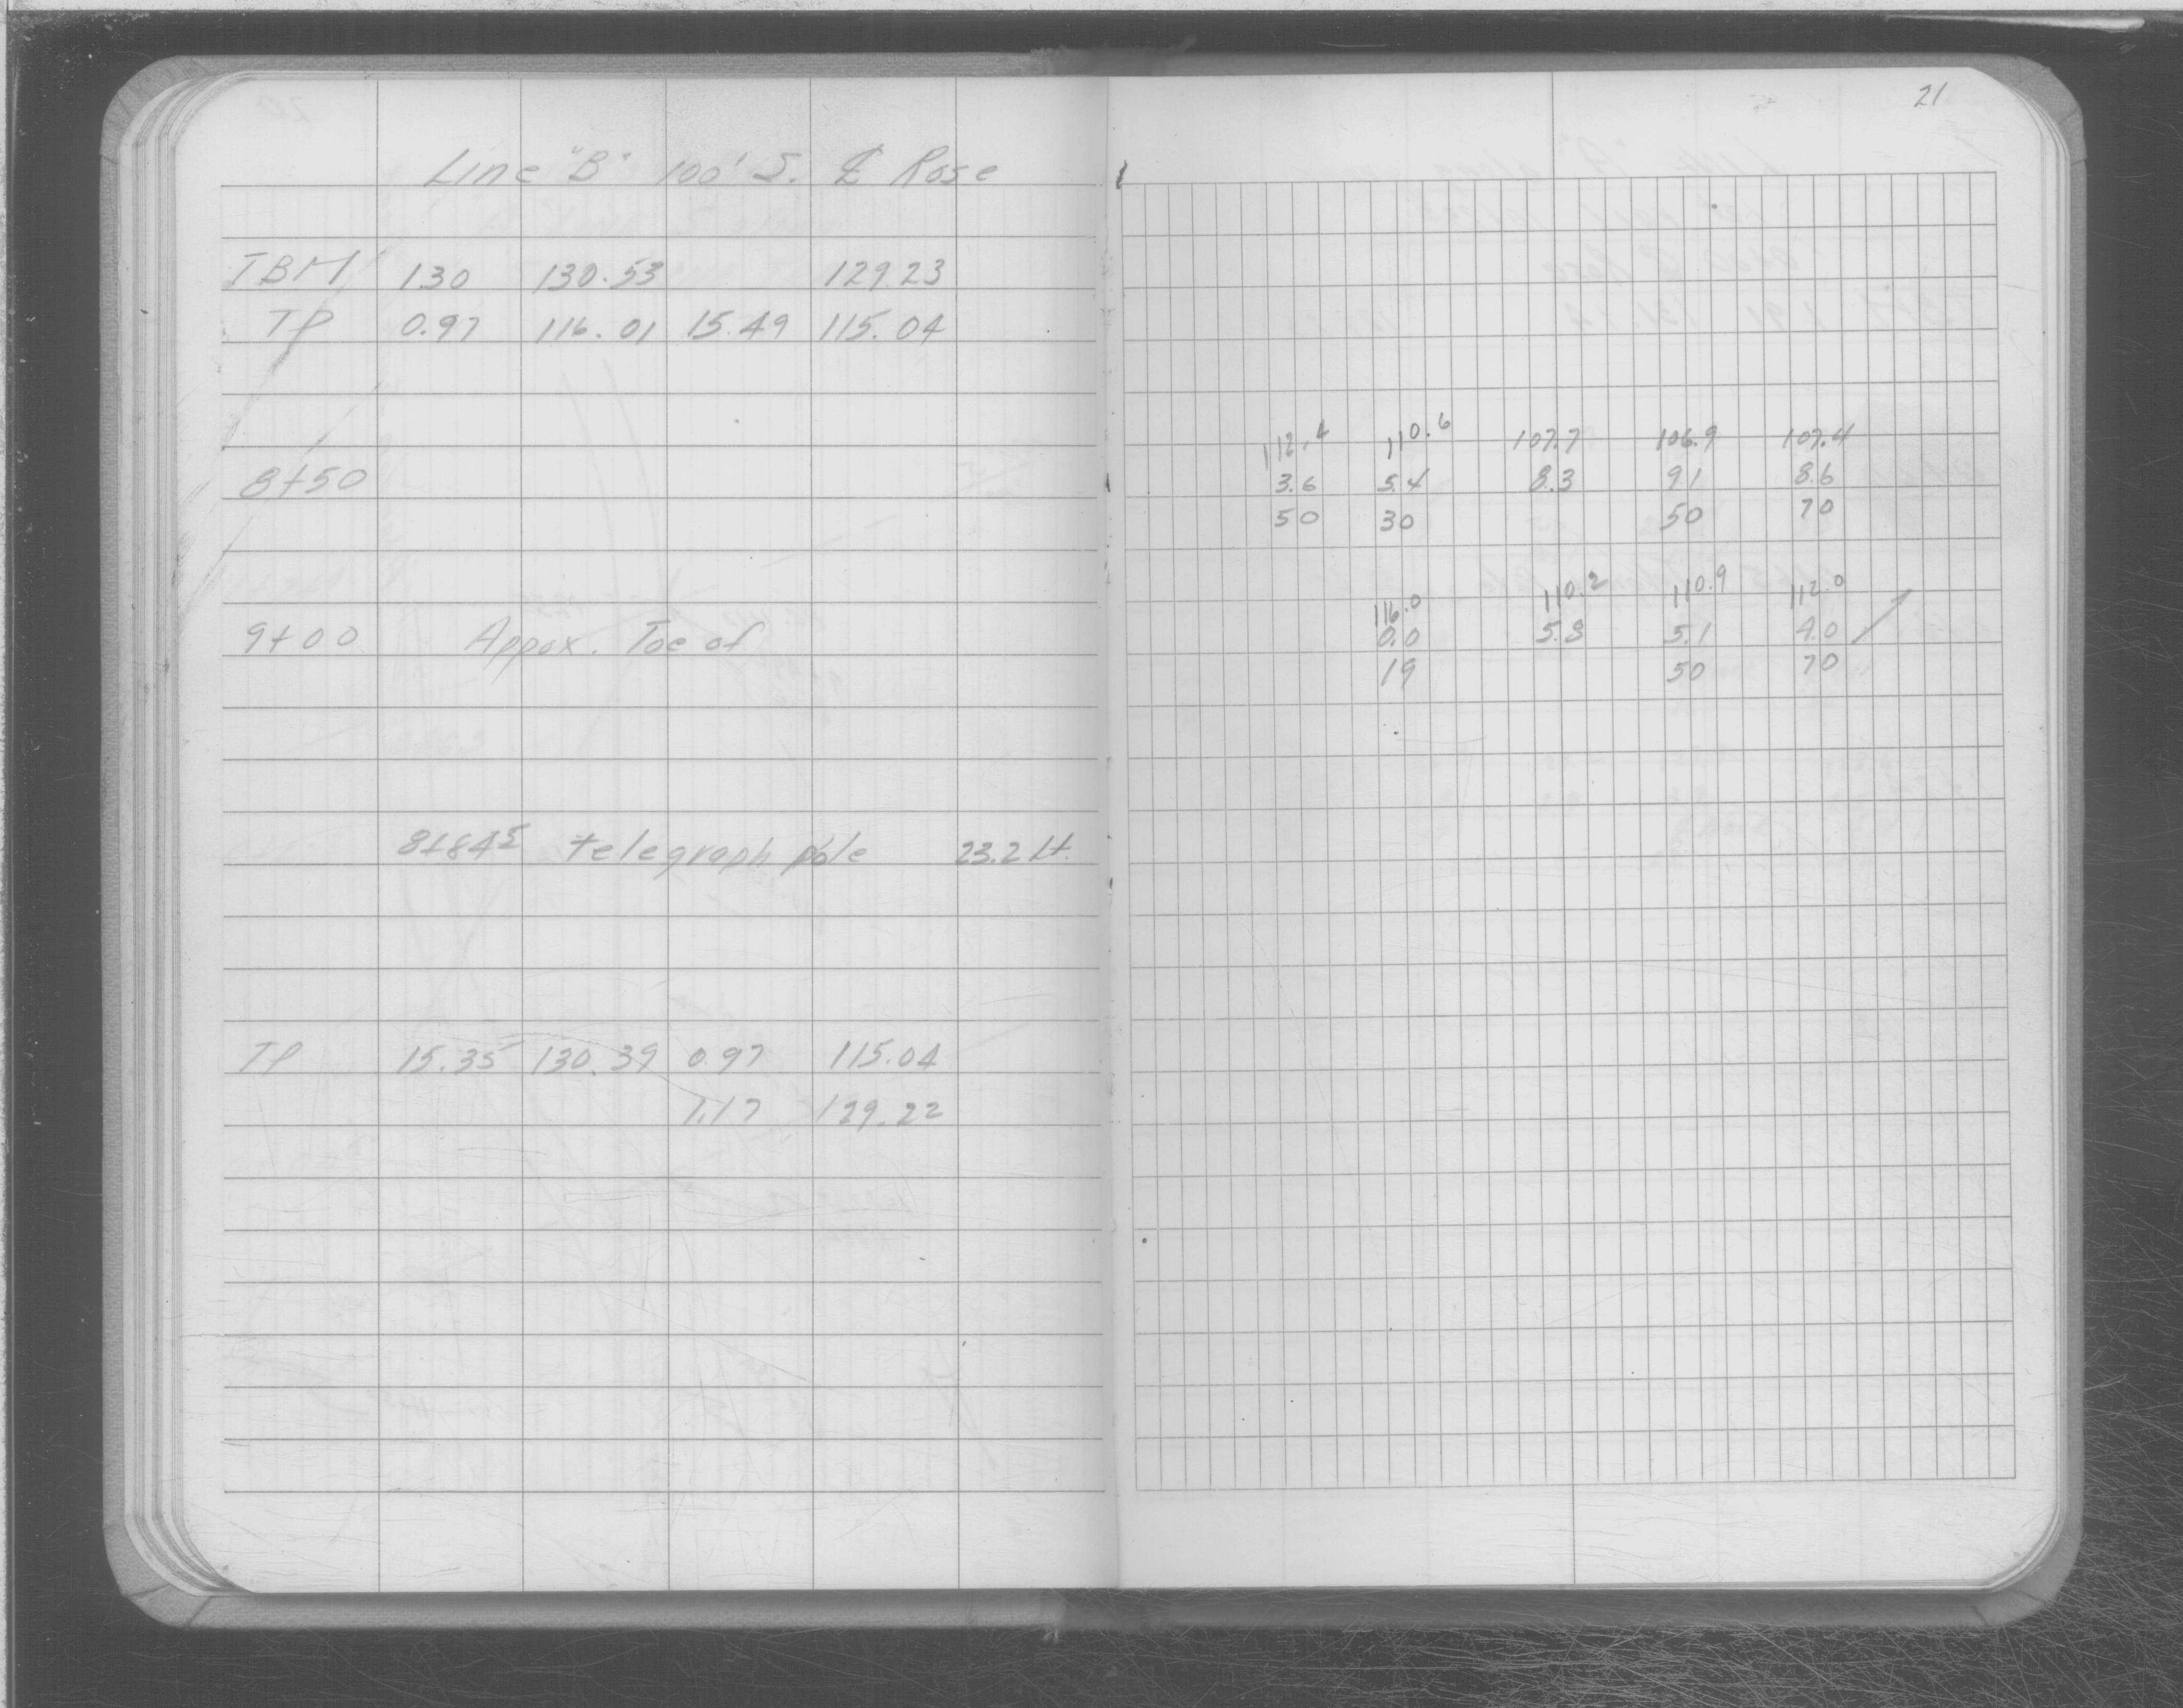 Line "B" 100' S. ℄ Rose
TBM 1.30 130.53 129.23
TP 0.97 116.01 15.49 115.04
8+50
9+00 Appox. Toe of
8+84⁵ telegraph pole 23.2 Lt.
TP 15.35 130.39 0.97 115.04
1.17 129.22
21
112.4 110.6 107.7 106.9 107.4
3.6 5.4 8.3 9.1 8.6
50 30 50 70
116.0 110.2 110.9 112.0
0.0 5.8 5.1 4.0
19 50 70